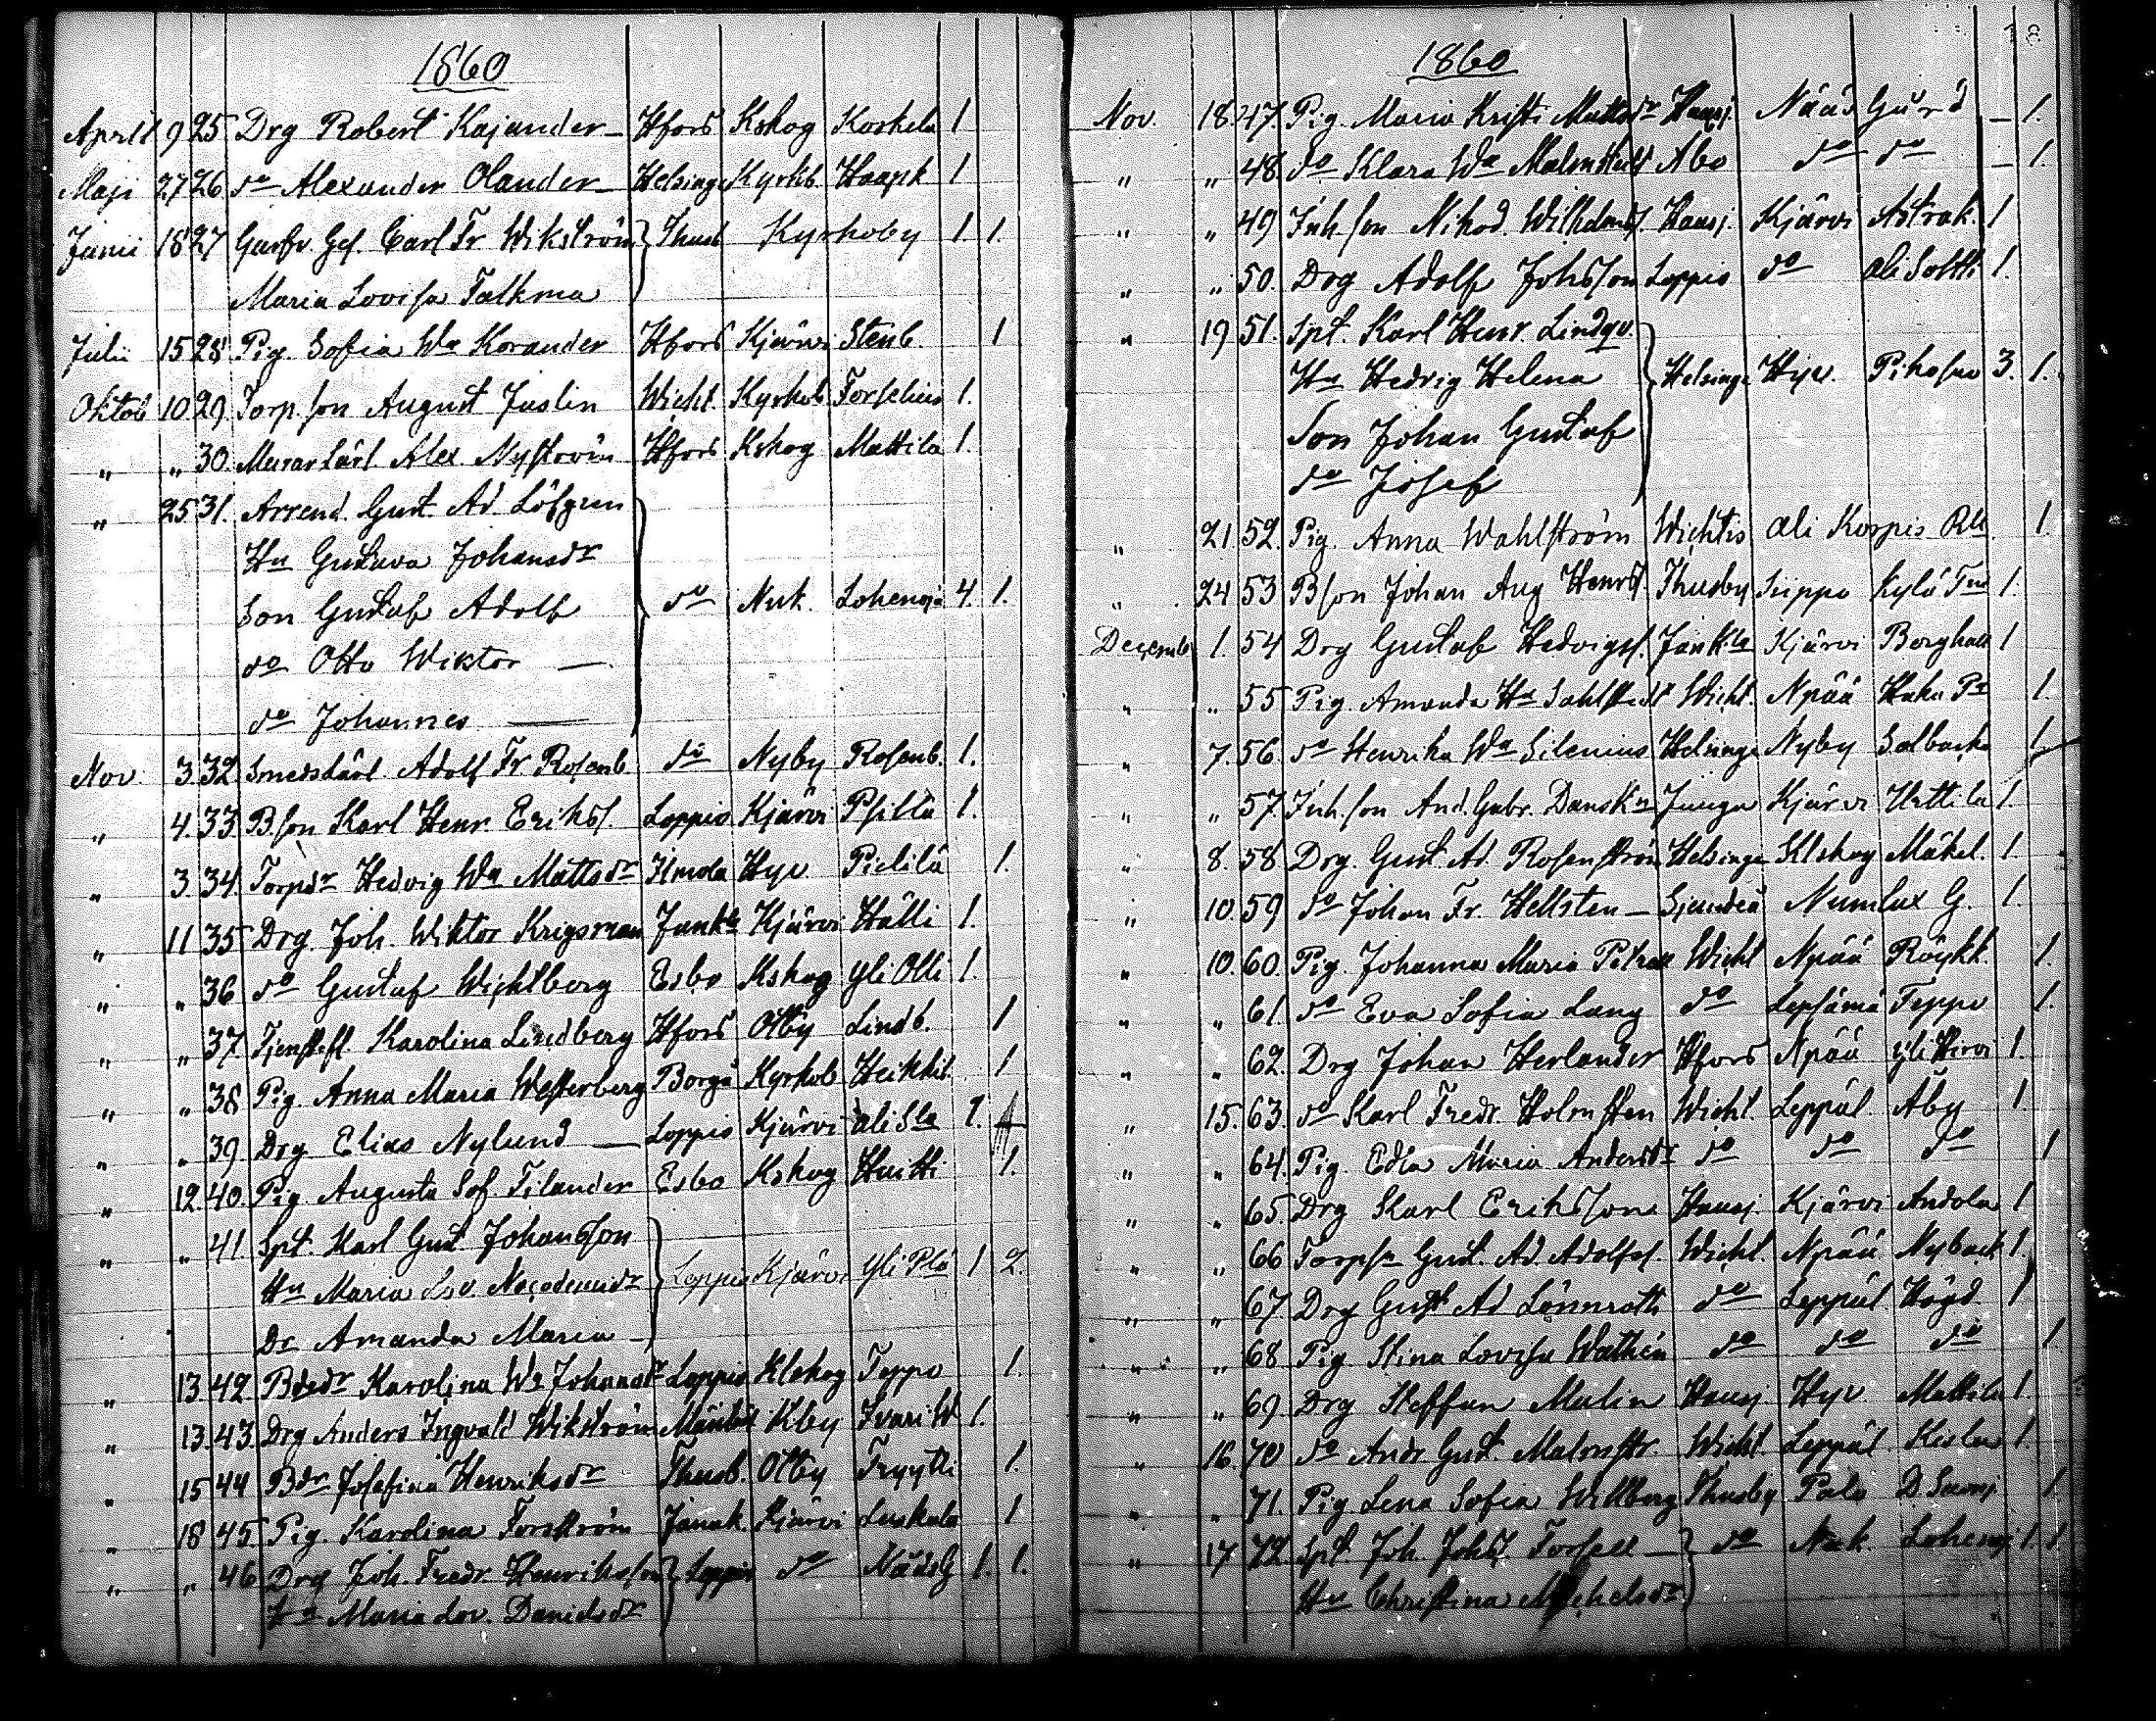 1860
April 9 25 Drg Robert Kajander — Hfors Kskog Koskela 1
Maji 27 26 do Alexander Olander — Helsinge Kyrkb Haapk 1
Junii 18 27 Garfv. Ges. Carl Fr Wikström } Thusb Kyrkoby 1. 1.
Maria Lovisa Falkma
Julii 15 28 Pig. Sofia Wa Korander Hfors Kjärvi Stenb. 1
Oktob 10 29 Torp.son August Juslin Wicht. Kyrkob Forselius 1.
" " 30 Murarlärl Alex Nyström Hfors Kskog Mattila 1.
" 25 31. Arrend. Gust. Ad. Löfgren
Hu Gustava Johansdr
Son Gustaf Adolf } do Nuk. Lohenoja 4. 1.
do Otto Wiktor —
do Johannes —
Nov. 3. 32 Smedslärl Adolf Fr. Rosenb do Nyby Rosenb. 1.
" 4. 33 B.son Karl Henr. Eriks. Loppis Kjärvi 1.
" 3. 34. Torpdr Hedvig Wa Mattsdr Hyv Pietilä 1.
" 11 35 Drg. Joh. Wiktor Krigsman Jankla Kjärvi Hälli 1.
" " 36 do Gustaf Wichtberg Esbo Kskog Yli Olli 1.
" " 37 Karolina Lindberg Hfors Olby Lindb. 1
" " 38 Pig. Anna Maria Westerberg Borgå Kyrkob Heikkil. 1
" " 39 Drg Elias Nylund — Loppis Kjärvi ali Sla 1.
" 12. 40. Pig. Augusta Sof. Tilander Esbo Kskog Huitti 1.
" " 41 Spt. Karl Gust Johansson
Hu Maria Lov. Nicodemidr } Loppis Kjärvi Yli Plä 1 2.
Dr Amanda Maria —
" 13. 42 Karolina Wa Johansdr Loppis Klskog Teppo 1.
" 13. 43. Drg Anders Ingvald Wikström Kby 1.
" 15 44 Bdr Josefina Henriksdr Thusb. Olby Fryytti 1.
" 18 45. Pig. Karolina Forsström Janak. Kjärvi Luskala 1
" " 46 Drg Joh. Fredr. Henriksson } Loppis do Nääs G 1. 1.
Maria Lov. Danielsdr
1860
Nov. 18. 47. Pig. Maria Kristi Mattsdr Hausj. Nääs Gård — 1.
" " 48. do Klara Wa Malmstedt Abo do do — 1.
" " 49 Inh.son Nikod. Wilhelms. Hausj. Kjärvi Astrak. 1
" " 50. Drg Adolf Johsson Loppis do ali Soltti 1.
" 19 51. Spt. Karl Henr. Lindqv.
Hu Hedvig Helena } Helsinge Hyv. 3. 1.
Son Johan Gustaf
do Josef
" 21. 52. Pig. Anna Wahlström Wichtis ali Korpis Rll 1.
" 24 53 B.son Johan Aug Henrs. Thusby Siippo Kylä 1.
Decemb 1. 54 Drg Gustaf Hedvigs. Jankla Kjärvi Berghall 1
" " 55 Pig. Amanda Ha Sahlstedt Wicht. Npää Haka 1.
" 7. 56. do Henrika Wa Silenius Helsinge Nyby Solbacka 1
" " 57. Inh.son And. Gabr. Dansk Kjärvi Urttila 1.
" 8. 58 Drg. Gust. Ad. Rosenström Helsinge Klskog Mäkel. 1.
" 10. 59 do Johan Fr. Hellsten — Sjundeå Numlax G. 1.
" 10. 60. Pig. Johanna Maria Petrell Wicht Npää Röykk. 1.
" " 61. do Eva Sofia Lang do Lepsämä Teppo 1.
" " 62. Drg Johan Herlander Hfors Npää yli Hirvi 1.
" 15. 63. do Karl Fredr. Holmsten Wicht. Leppäl. Åby 1.
" " 64. Pig. Edla Maria Andersdr do do do 1
" " 65. Drg Karl Eriksson Hausj. Kjärvi Andola 1.
" " 66 Torpsn Gust. Ad. Adolfs. Wicht. Npää Nyback. 1.
" " 67. Drg Gust Ad Lönnroth do Leppäl Högd 1
" " 68 Pig Stina Lovisa Wathén do do do 1
" " 69. Drg Steffan Malin Hausj. Hyv. Mattila 1.
" 16. 70 do Andr Gust. Malmstr. Wicht. Leppäl. 1.
" " 71. Pig. Lena Sofia Willberg Thusby Palo 1.
" 17 72 Spt. Joh. Johs. Forsell — } do Nuk. Lohenoj 1. 1.
Hu Christina Michelsdr